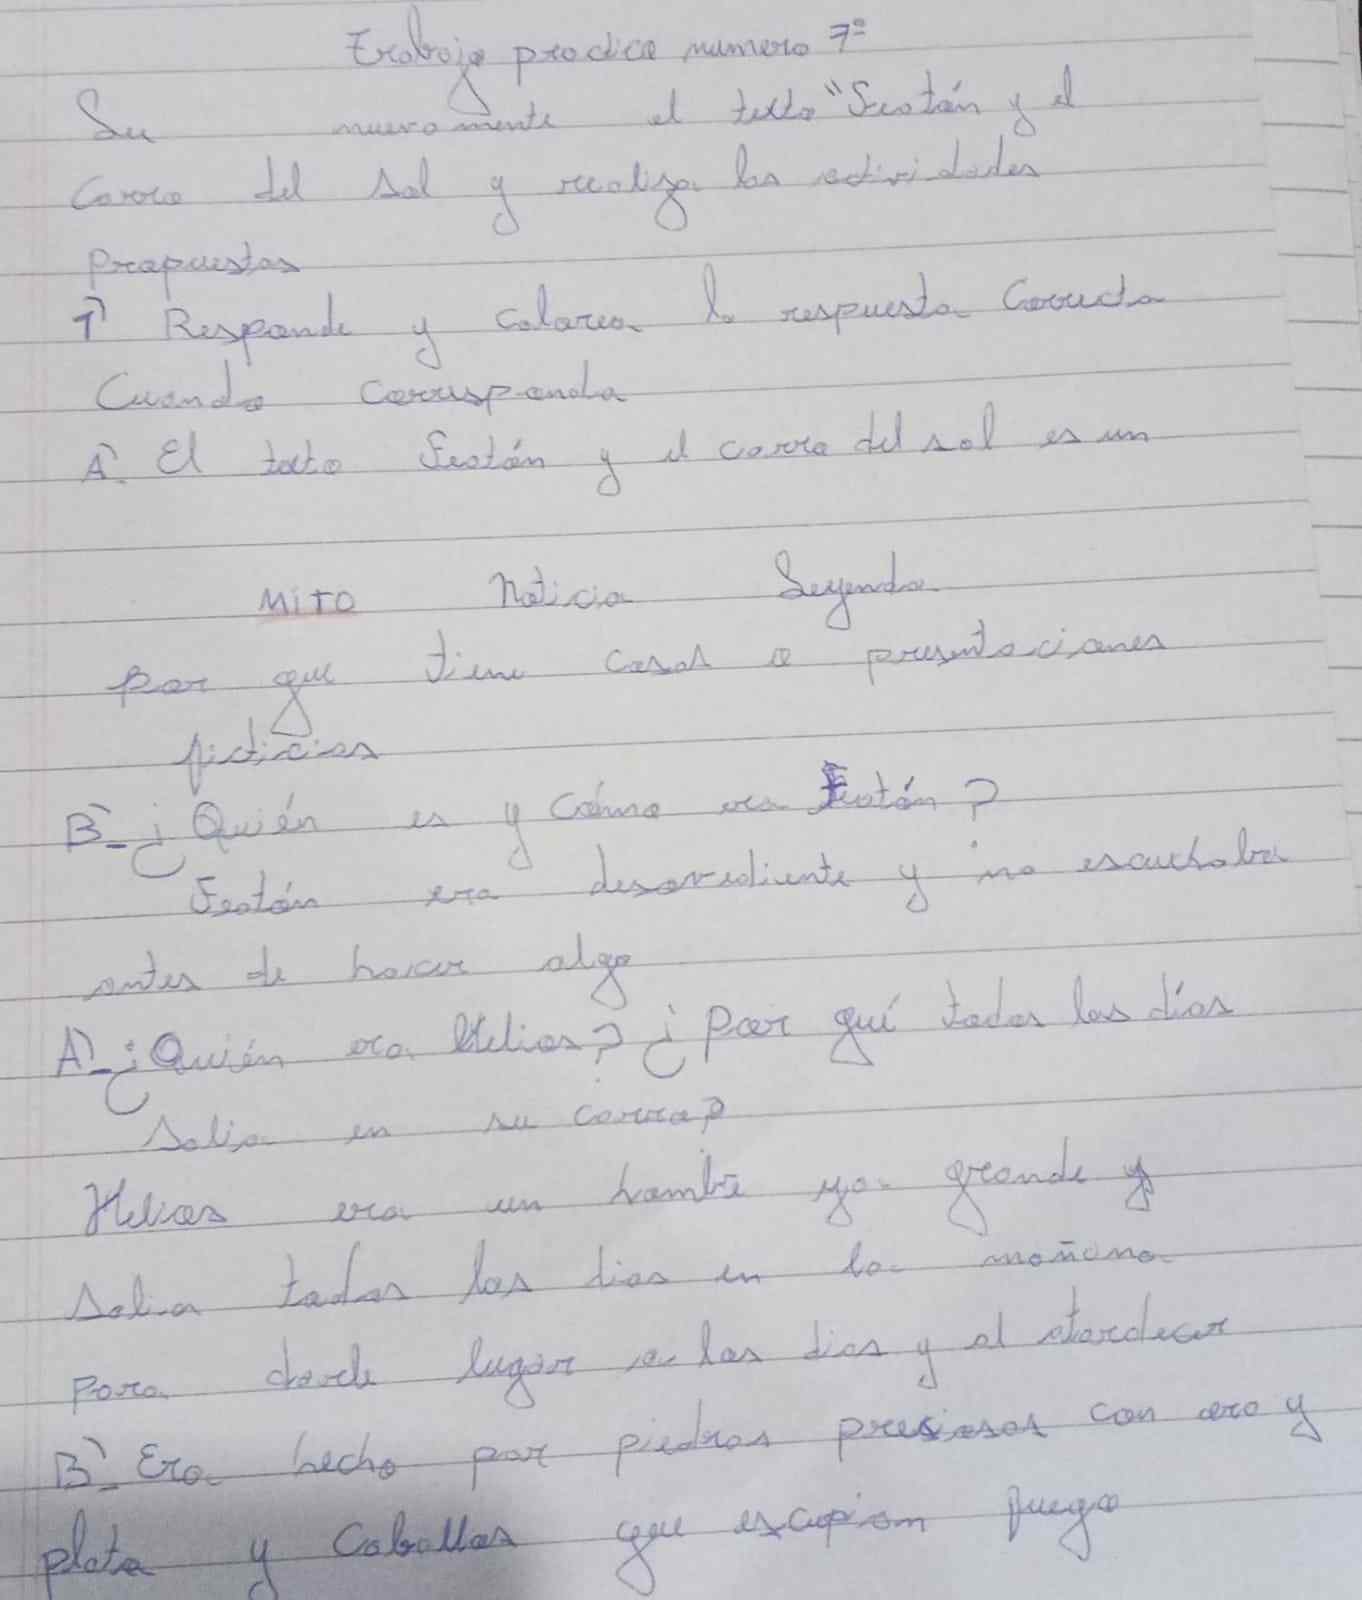 Trabajo practico numero 7º
Leé nuevamente el texto "Feotón y el
Carro del sol y realiza las actividades
propuestas
1) Responde y colorea la respuesta Correcta
Cuando corresponda
A. El texto Feotón y el carro del sol es un
MiTO Noticia Leyenda
por que tiene cosas o presentaciones
ficticias
B- ¿Quién es y Cómo era Feotón?
Feotón era desovediente y no escuchaba
antes de hacer algo
A)- ¿Quién era Helios? ¿por qué todos los días
salia en su carro?
Helios era un hombre ya grande y
salia todos los dias en la mañana
para darle lugar a los dias y al atardecer
B)- Era hecho por piedras presiosas con oro y
plata y Caballos que escupian fuego